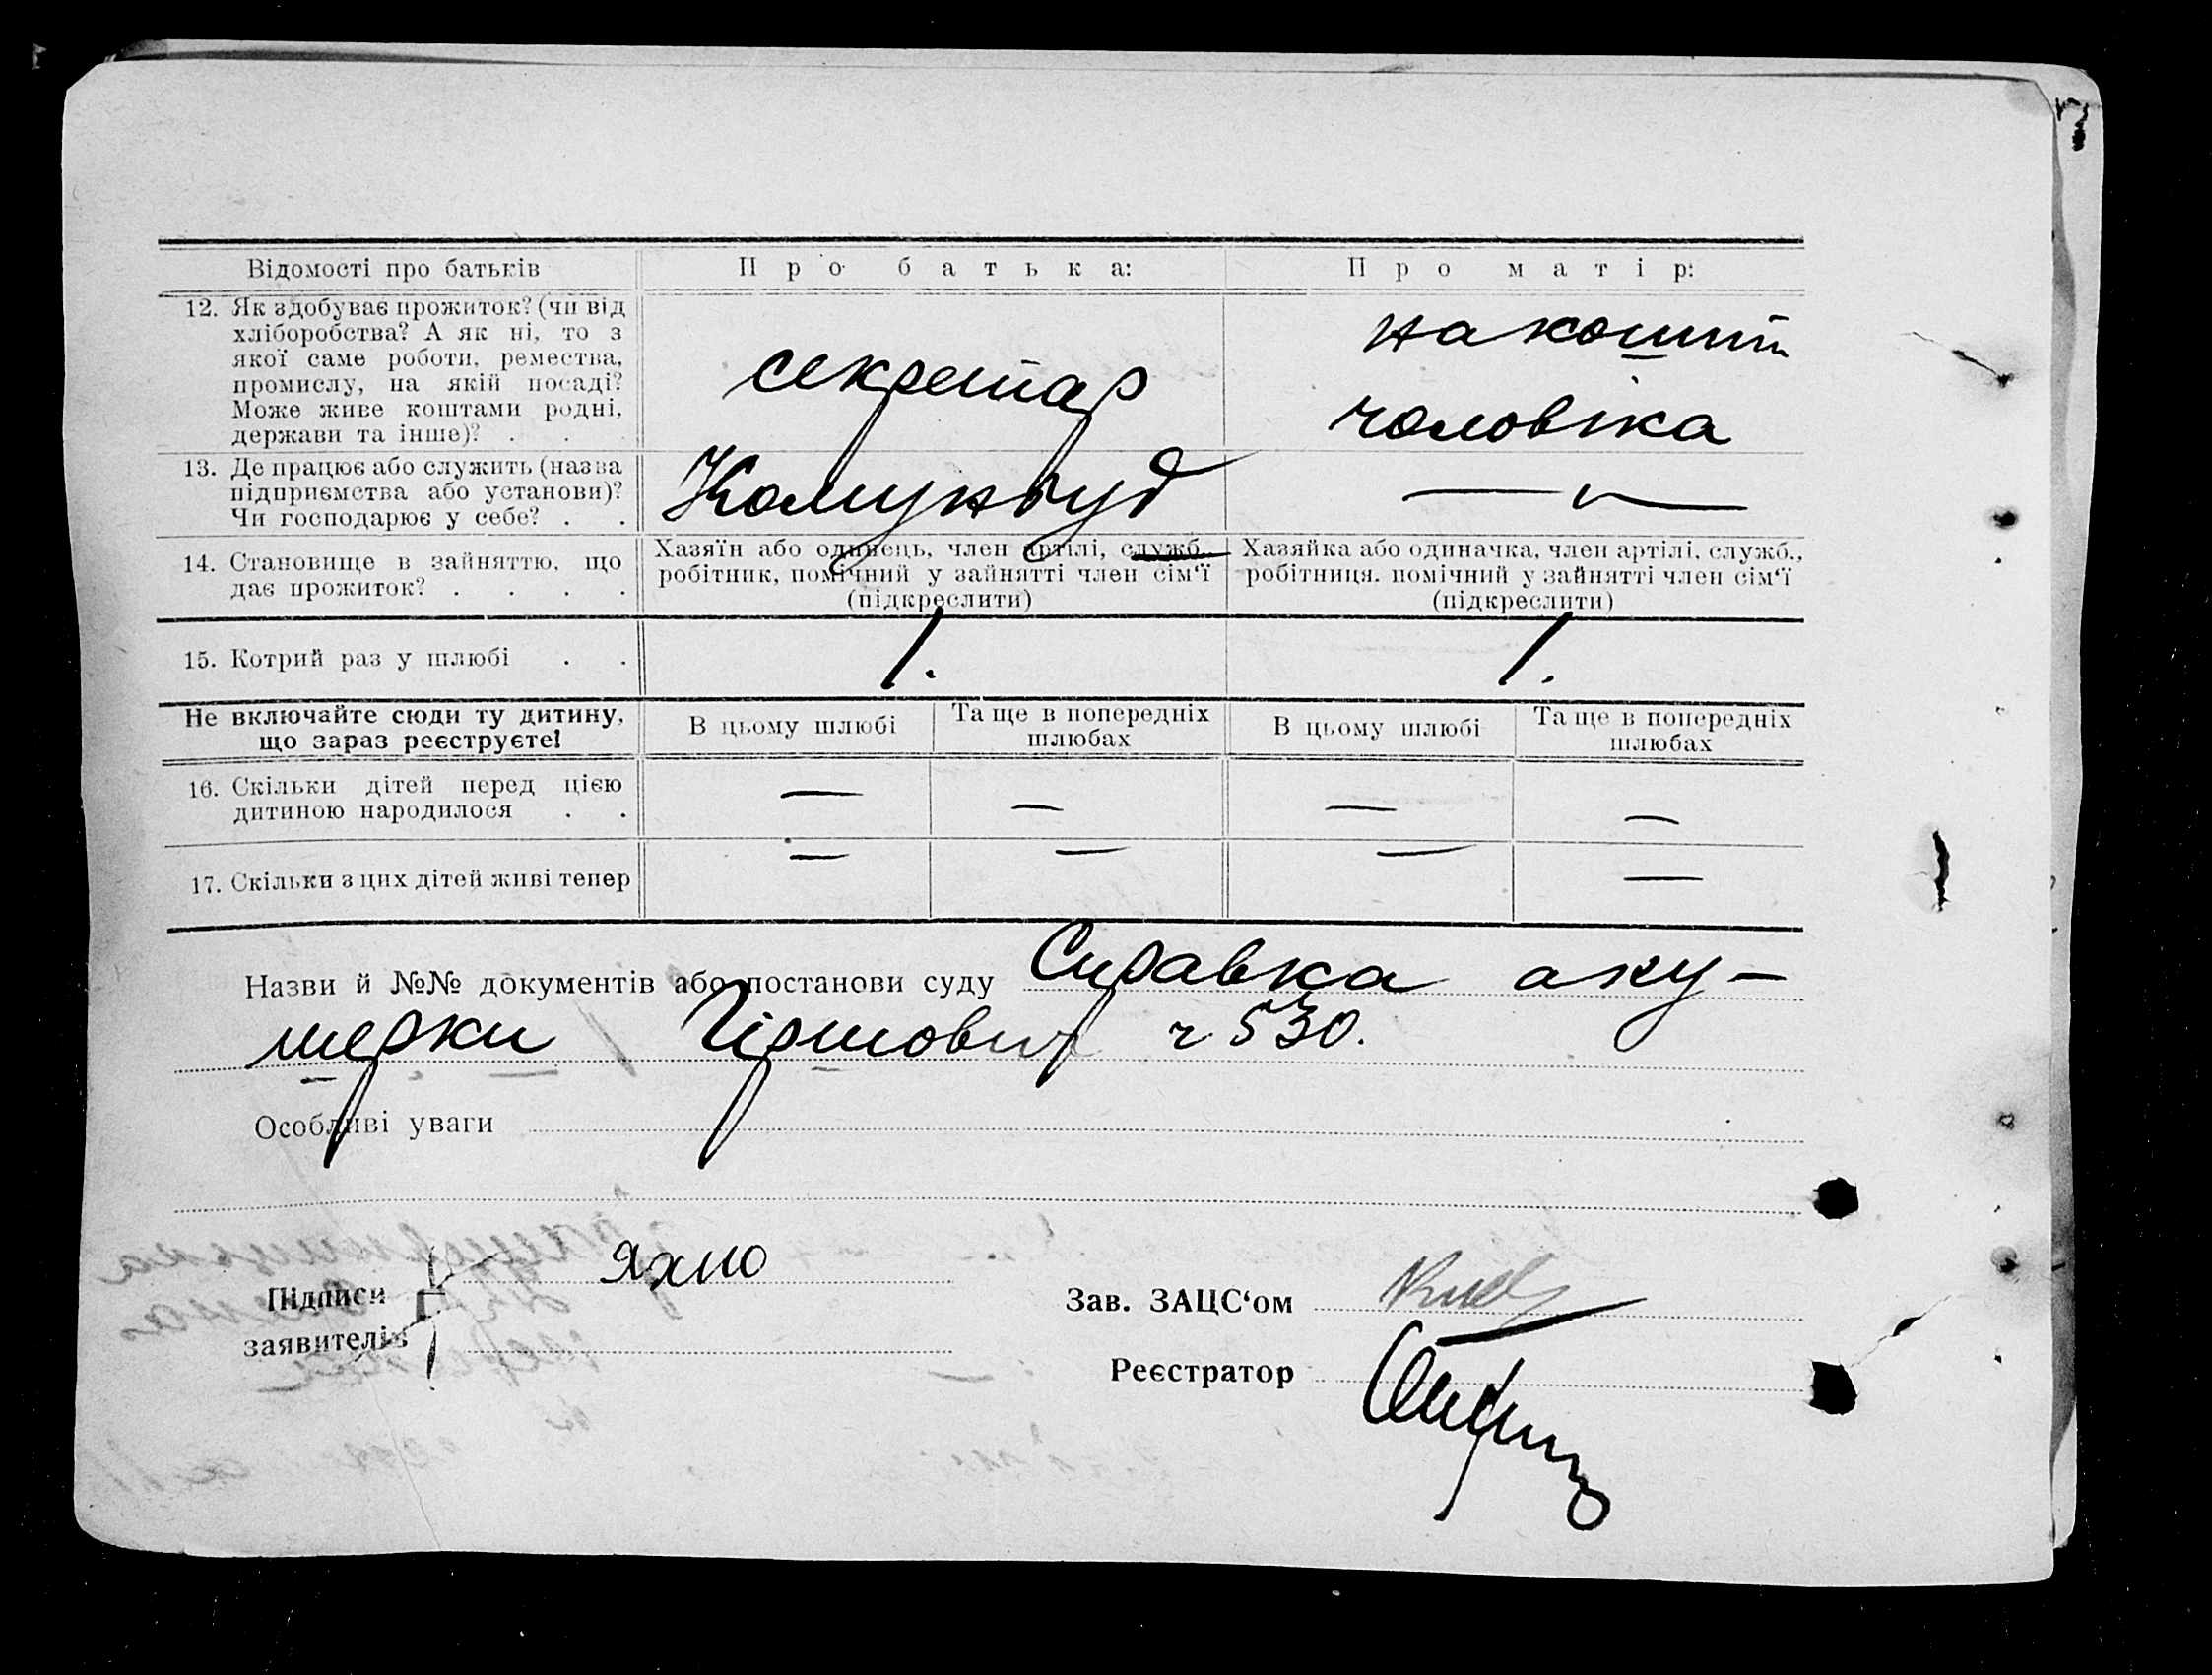 Відомості про батьків
Про батька:
Про матір:
12. Як здобуває прожиток? (чи від
хліборобства? А як ні, то з
якої саме роботи, ремества,
промислу, на якій посаді?
Може живе коштами родні,
держави та інше)? . .
секретар
на кошти
чоловіка
13. Де працює або служить (назва
підприємства або установи)?
Чи господарює у себе? . .
Комунбуд
14. Становище в зайняттю, що
дає прожиток? . . . .
Хазяїн або одинець, член артілі, служб.,
робітник, помічний у зайнятті член сім'ї
(підкреслити)
Хазяйка або одиначка, член артілі, служб.,
робітниця, помічний у зайнятті член сім'ї
(підкреслити)
15. Котрий раз у шлюбі . .
1.
1.
Не включайте сюди ту дитину,
що зараз реєструєте!
В цьому шлюбі
Та ще в попередніх
шлюбах
В цьому шлюбі
Та ще в попередніх
шлюбах
16. Скільки дітей перед цією
дитиною народилося . .
— — — —
17. Скільки з цих дітей живі тепер
— — — —
Назви й №№ документів або постанови суду Справка аку-
шерки Гіршович ч 530.
Особливі уваги
Підписи
заявителів
Яхно
Зав. ЗАЦС'ом
Реєстратор